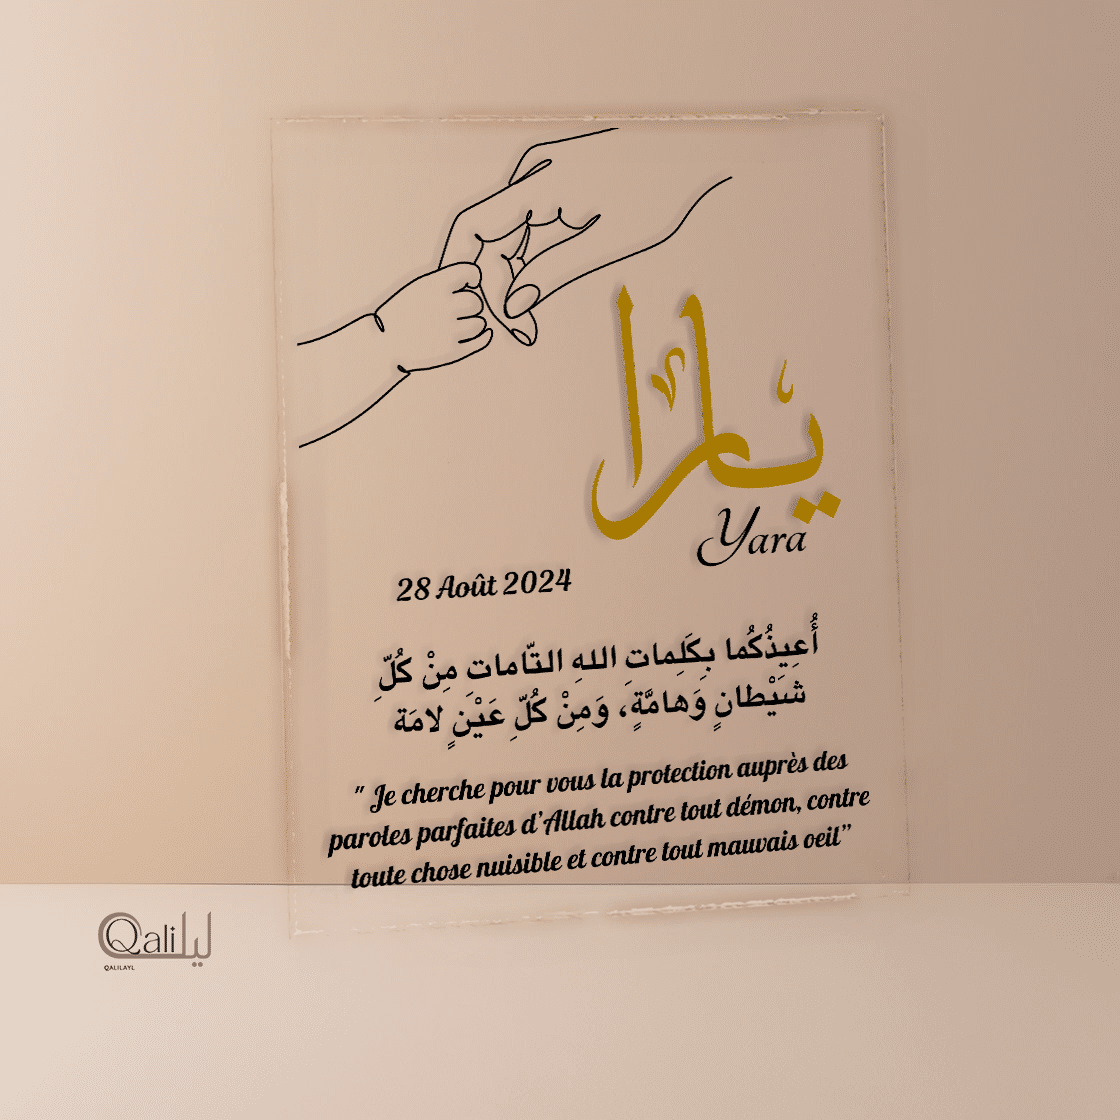 يارا
Yara
28 Août 2024
أُعِيذُكُما بِكَلِماتِ اللهِ التّاماتِ مِنْ كُلِّ
شَيْطانٍ وَهامَّةٍ، وَمِنْ كُلِّ عَيْنٍ لامَة
" Je cherche pour vous la protection auprès des
paroles parfaites d’Allah contre tout démon, contre
toute chose nuisible et contre tout mauvais oeil”
Qali ليل
QALILAYL